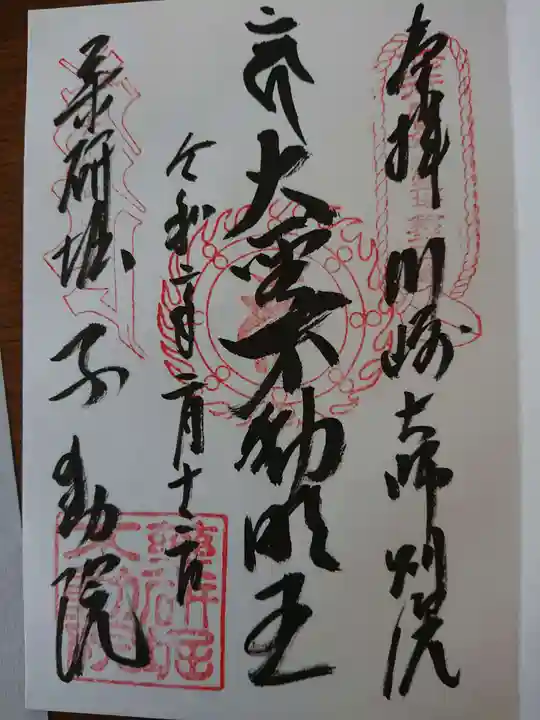 奉拝 川崎大師別院
大聖不動明王
令和二年二月十二日
薬研堀 不動院
薬研堀不動院